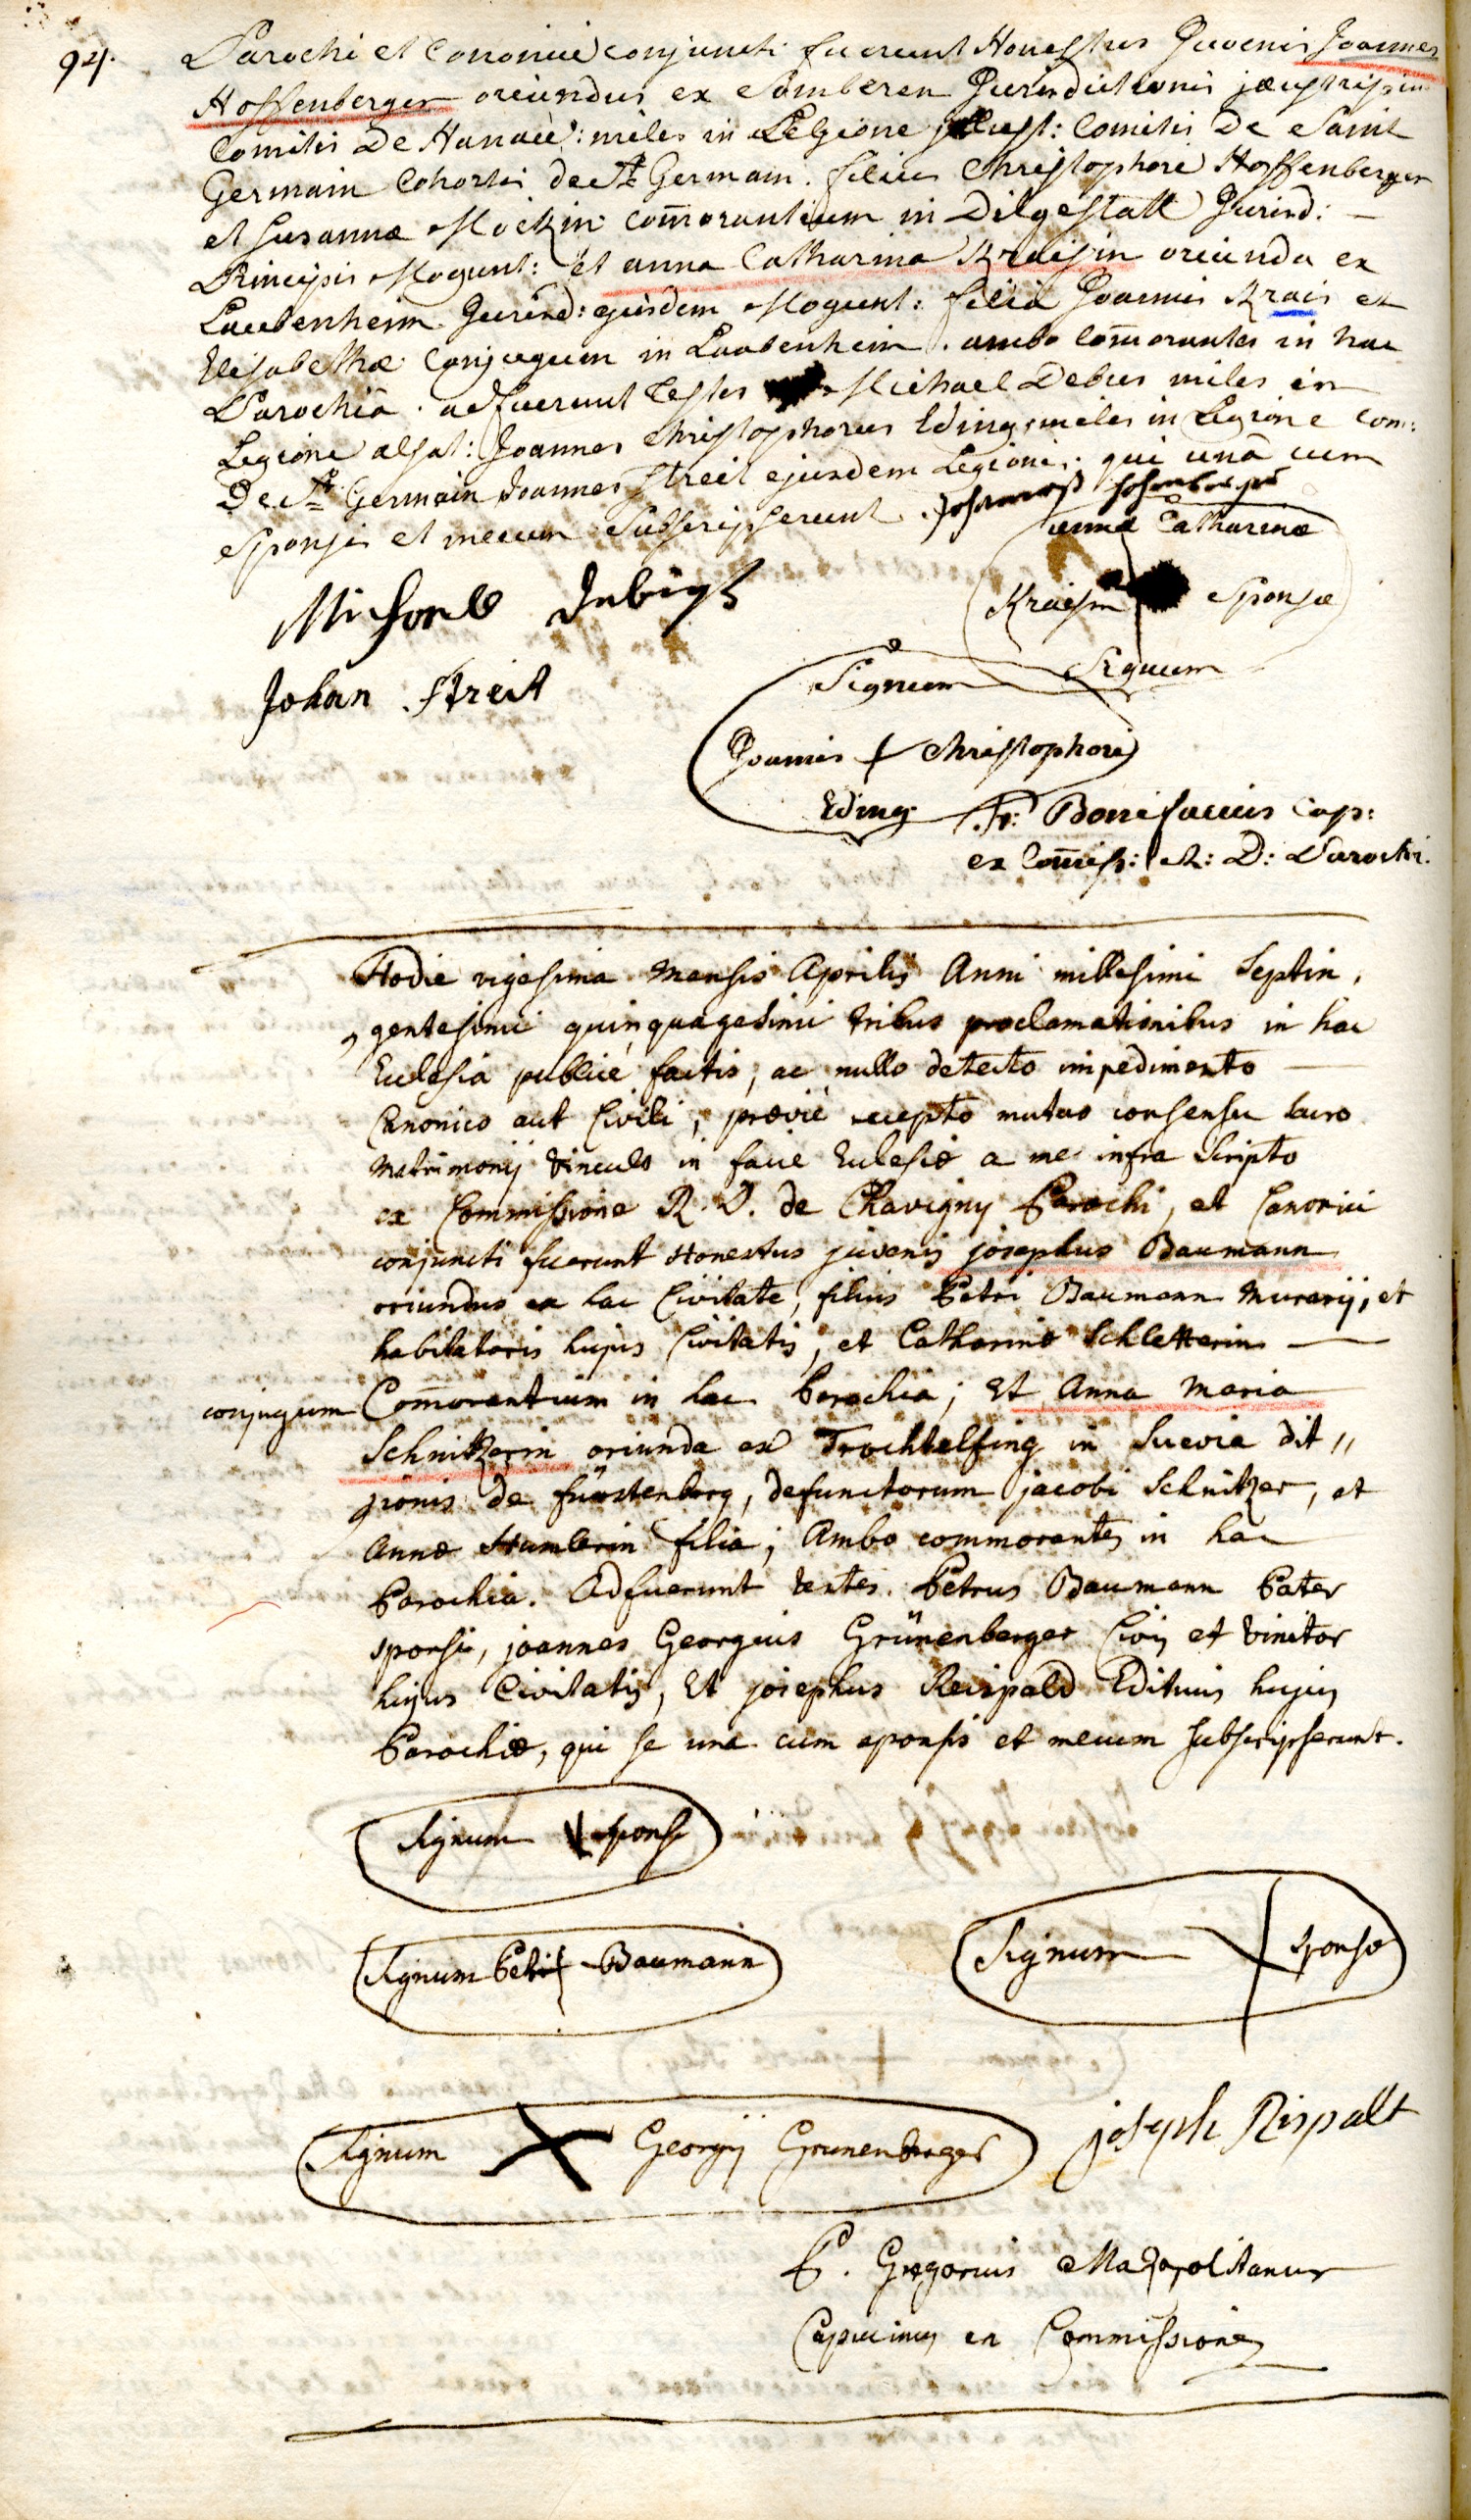 94.
Parochi et Canonici conjuncti fuerunt Honestus Juvenis Joannes
Hoffenberger oriundus ex Somberen Jurisdictionis
Comitis De Hanau: miles in Legione Comitis De Saint
Germain Cohortis de St Germain. filius Christophori Hoffenberger
et Susannæ Mockin com̄orantium in Dilgestatt Jurisd: —
Principis Mogunt: et anna Catharina Kraisin oriunda ex
Laubenheim Jurisd: ejusdem Mogunt: filia Joannis Krais et
Elisabethæ Conjugum in Laubenheim. ambo com̄orantes in hac
Parochiâ. adfuerunt testes Michael Debus miles in
Legione alsat: Joannes Christophorus Eding miles in Legione com:
De St Germain Joannes Streit ejusdem Legionis. qui unâ cum
Sponsis et mecum Subscripserunt.
annæ Catharinæ
Kraisin Sponsæ
Signum
Johan Streit
Signum
Joannis + Christophori
Eding
Fr: Bonifacius Cap:
ex Com̄iss: R: D: Parochi.
Hodie vigesima Mensis Aprilis Anni millesimi Septin,
gentesimi quinquagesimi tribus proclamationibus in hac
Ecclesia publicè factis, ac nullo detecto impedimento —
Canonico aut Civili, præviè recepto mutuo consensu sacro
Matrimonij Vinculo in facie Ecclesiæ a me infra Scripto
ex Commissione R. D. de Chavigny Parochi, et Canonici
conjuncti fuerunt Honestus juvenis josephus Baumann
oriundus ex hac Civitate, filius Petri Baumann Murarij, et
habitatoris hujus Civitatis, et Catharinæ Schletterin —
conjugum Com̄orantium in hac Parochia; Et Anna Maria
Schnitzerin oriunda ex Trochtelfing in Suevia dit,,
gionis de fürstenberg, defunctorum jacobi Schnitzer, et
Annæ Humlerin filia; Ambo commorantes in hac
Parochia. Adfuerunt testes. Petrus Baumann Pater
sponsi, joannes Georgius Grünenberger Civis et Vinitor
hujus Civitatis, Et josephus Reispald Edituus hujus
Parochiæ, qui se una cum sponsis et mecum subscripserunt.
Signum sponsi
Signum Petri Baumann
Signum sponsæ
Signum X Georgij Grunenberger
joseph Rispallt
P. Gregorius
Capucinus ex Commissione